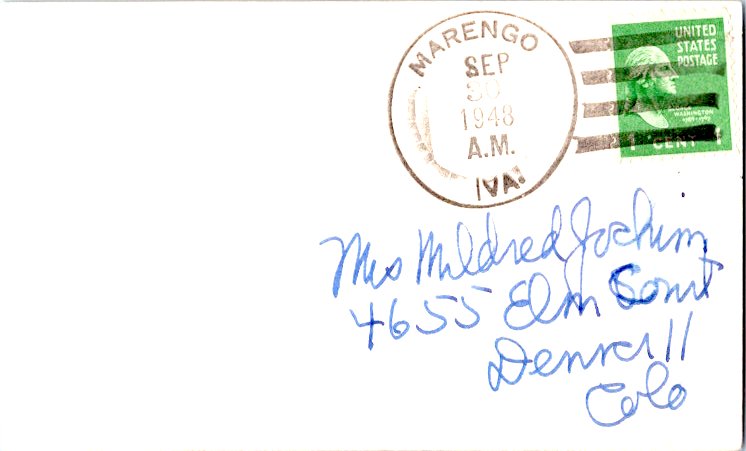 MARENGO
SEP
30
1948
A.M.
VA.
UNITED
STATES
POSTAGE
GEORGE
WASHINGTON
1789-1797
1 CENT 1
Mrs Mildred Jochim
4655 Elm Court
Denver 11
Colo